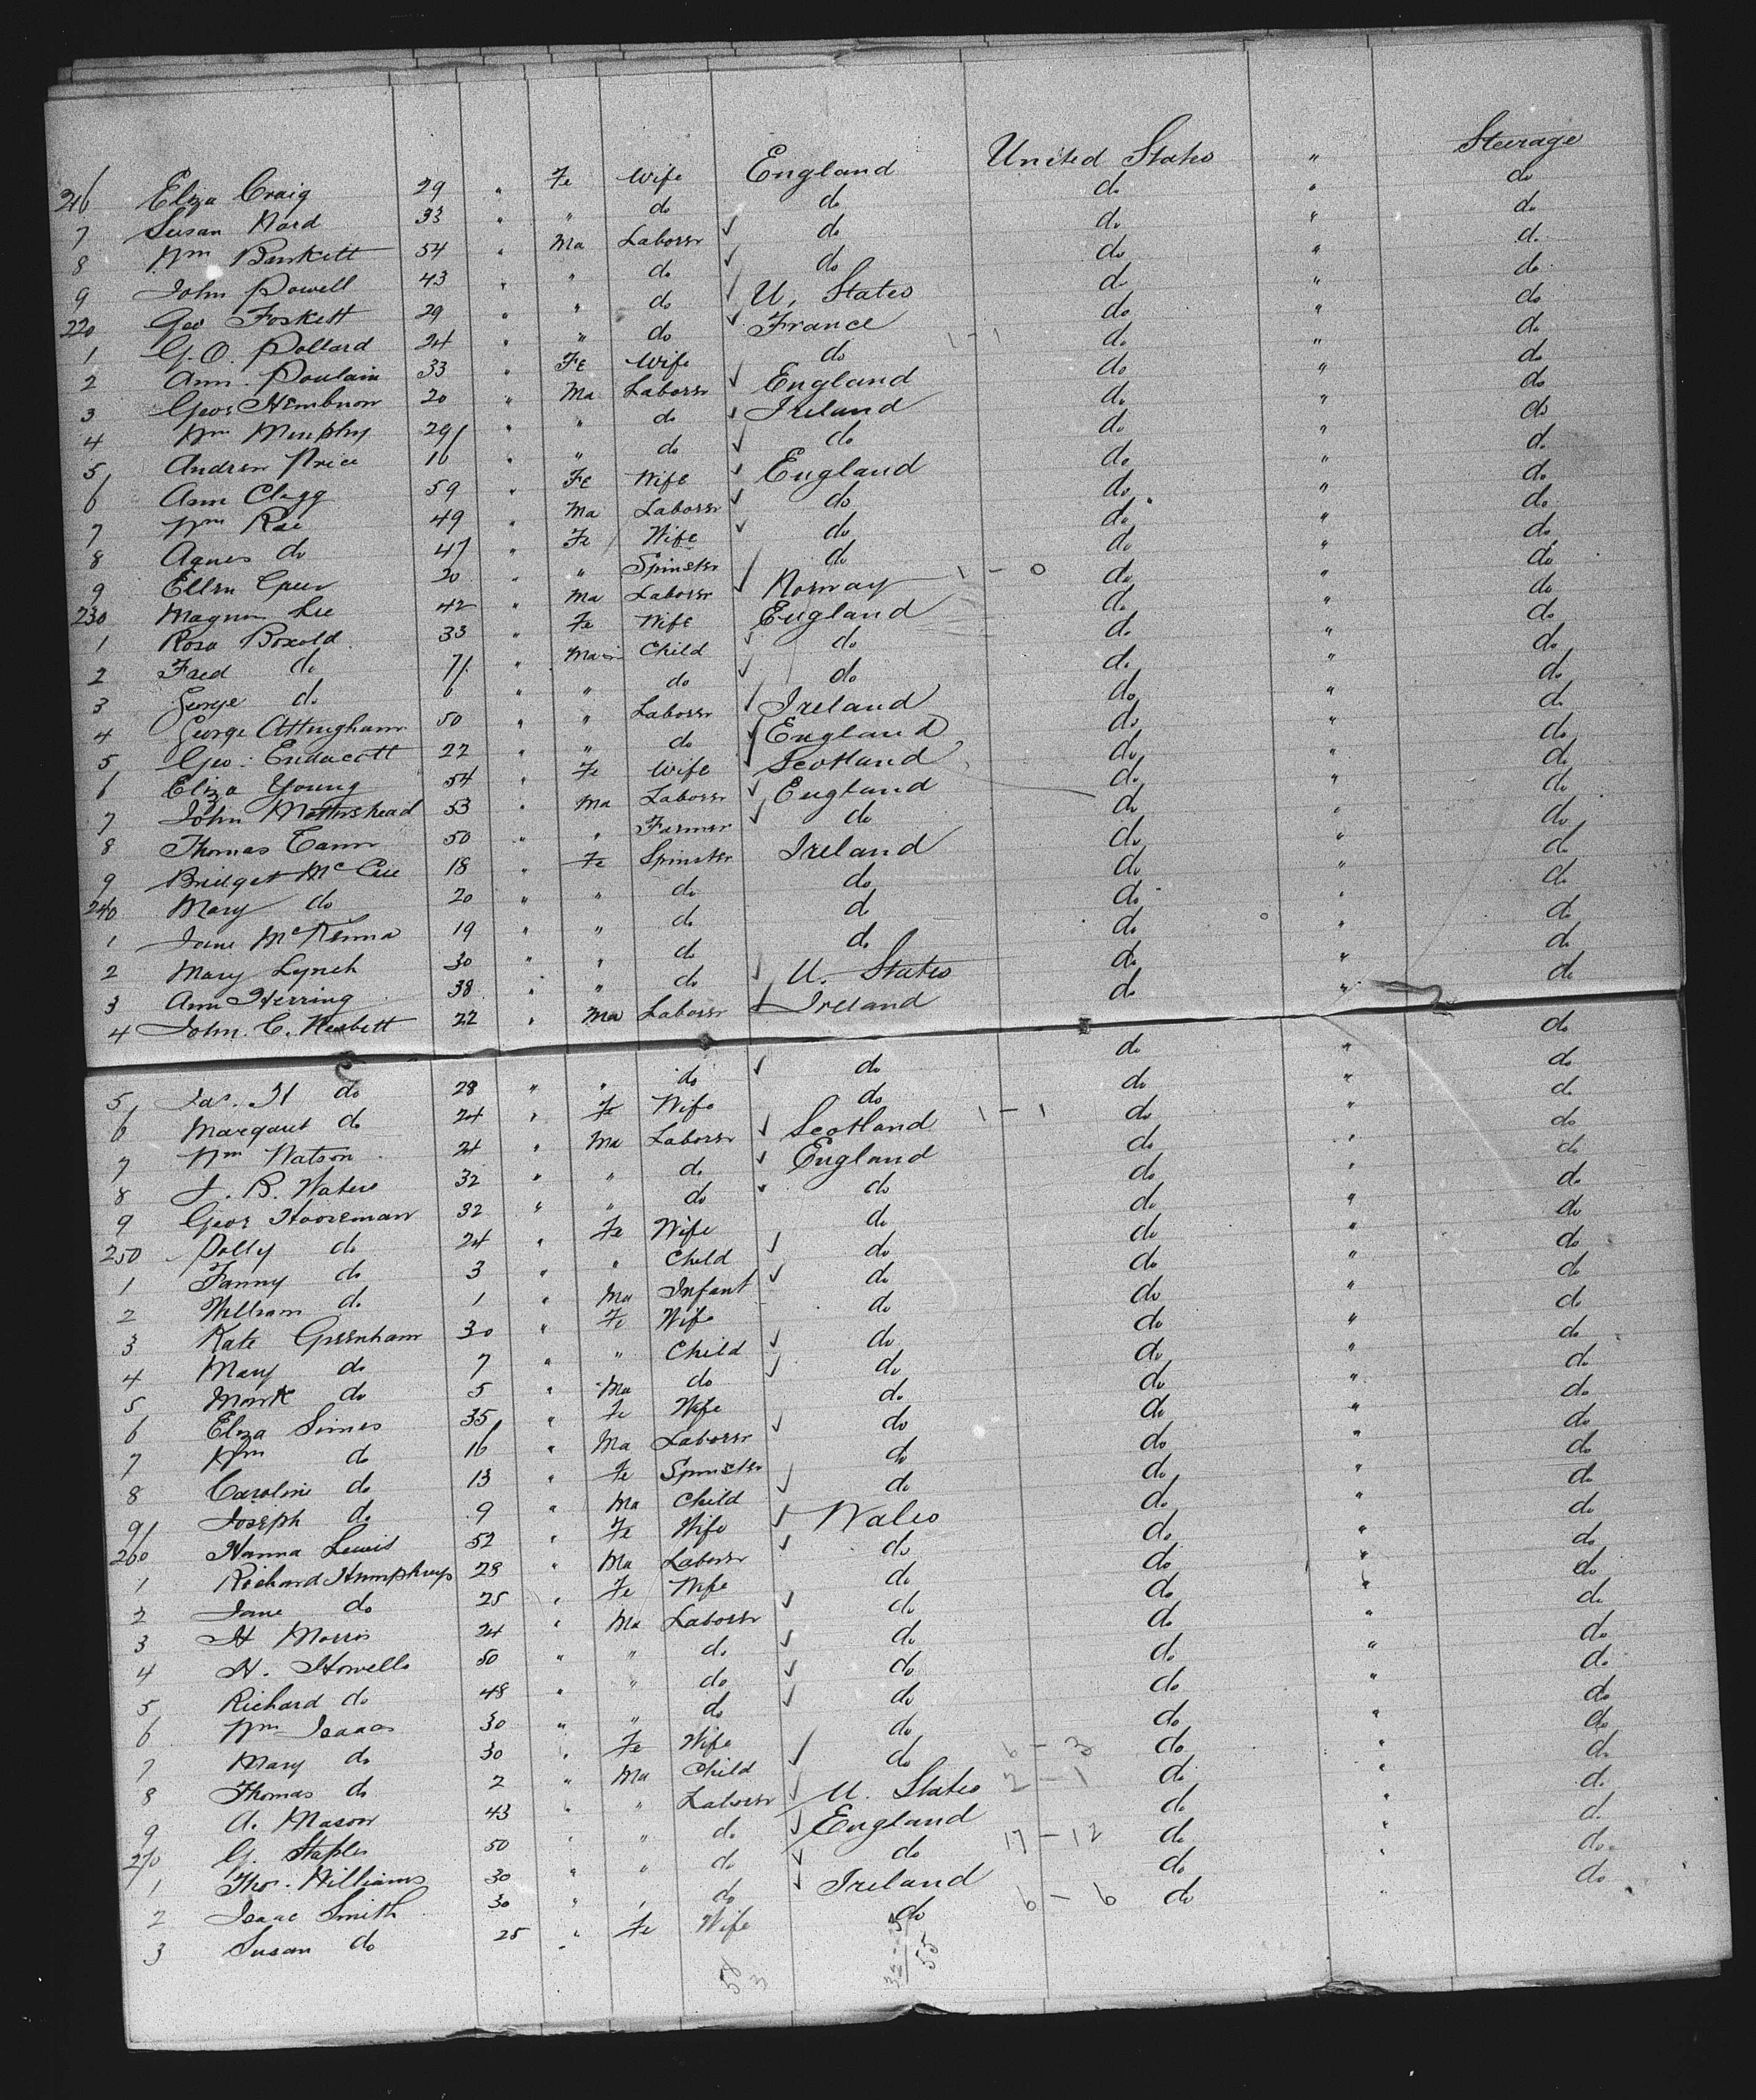 216 Eliza Craig 29 " Fe Wife England United States " Steerage
7 Susan Nard 33 " " do do do " do
8 Wm Bankett 54 " Ma Laborer do do " do
9 John Powell 43 " " do do do " do
220 Geo Foskett 29 " " do U. States do " do
1 G. O. Pollard 24 " " do France do " do
2 Ann Poulain 33 " Fe Wife do 1-1 do " do
3 Geo Hembrow 20 " Ma Laborer England do " do
4 Wm Murphy 29 " " do Ireland do " do
5 Andrew Price 16 " " do do do " do
6 Ann Clegg 59 " Fe Wife England do " do
7 Wm Rae 49 " Ma Laborer do do " do
8 Agnes do 47 " Fe Wife do do " do
9 Ellen Greer 20 " " Spinster do do " do
230 Magnus Lee 42 " Ma Laborer Norway 1-0 do " do
1 Rosa Boxold 33 " Fe Wife England do " do
2 Fred do 7 " Ma Child do do " do
3 George do 6 " " do do do " do
4 George Attingham 50 " " Laborer Ireland do " do
5 Geo. Endacott 22 " " do England do " do
6 Eliza Young 54 " Fe Wife Scotland do " do
7 John Mottershead 53 " Ma Laborer England do " do
8 Thomas Cann 50 " " Farmer do do " do
9 Bridget McCue 18 " Fe Spinster Ireland do " do
240 Mary do 20 " " do do do " do
1 Jane McKenna 19 " " do do do " do
2 Mary Lynch 30 " " do do do " do
3 Ann Herring 38 " " do U. States do " do
4 John. C. Nesbett 22 " Ma Laborer Ireland do " do
5 Jas. H do 28 " " do do do " do
6 Margaret do 24 " Fe Wife do do " do
7 Wm Watson 24 " Ma Laborer Scotland 1-1 do " do
8 J. B. Waters 32 " " do England do " do
9 Geo Hooreman 32 " " do do do " do
250 Polly do 24 " Fe Wife do do " do
1 Fanny do 3 " " Child do do " do
2 William do 1 " Ma Infant do do " do
3 Kate Greenham 30 " Fe Wife do do " do
4 Mary do 7 " " Child do do " do
5 Mark do 5 " Ma do do do " do
6 Eliza Simes 35 " Fe Wife do do " do
7 Wm do 16 " Ma Laborer do do " do
8 Caroline do 13 " Fe Spinster do do " do
9 Joseph do 9 " Ma Child do do " do
260 Hanna Lewis 52 " Fe Wife Wales do " do
1 Richard Humphreys 28 " Ma Laborer do do " do
2 Jane do 25 " Fe Wife do do " do
3 H Morris 24 " Ma Laborer do do " do
4 H. Howells 50 " " do do do " do
5 Richard do 48 " " do do do " do
6 Wm Isaacs 30 " " do do do " do
7 Mary do 30 " Fe Wife do do " do
8 Thomas do 2 " Ma Child do 6-3 do " do
9 A. Mason 43 " " Laborer U. States 2-1 do " do
270 G. Staples 50 " " do England do " do
1 Thos. Williams 30 " " do do 17-12 do " do
2 Isaac Smith 30 " " do Ireland do " do
3 Susan do 25 " Fe Wife do 6-6 do " do
58
3
55